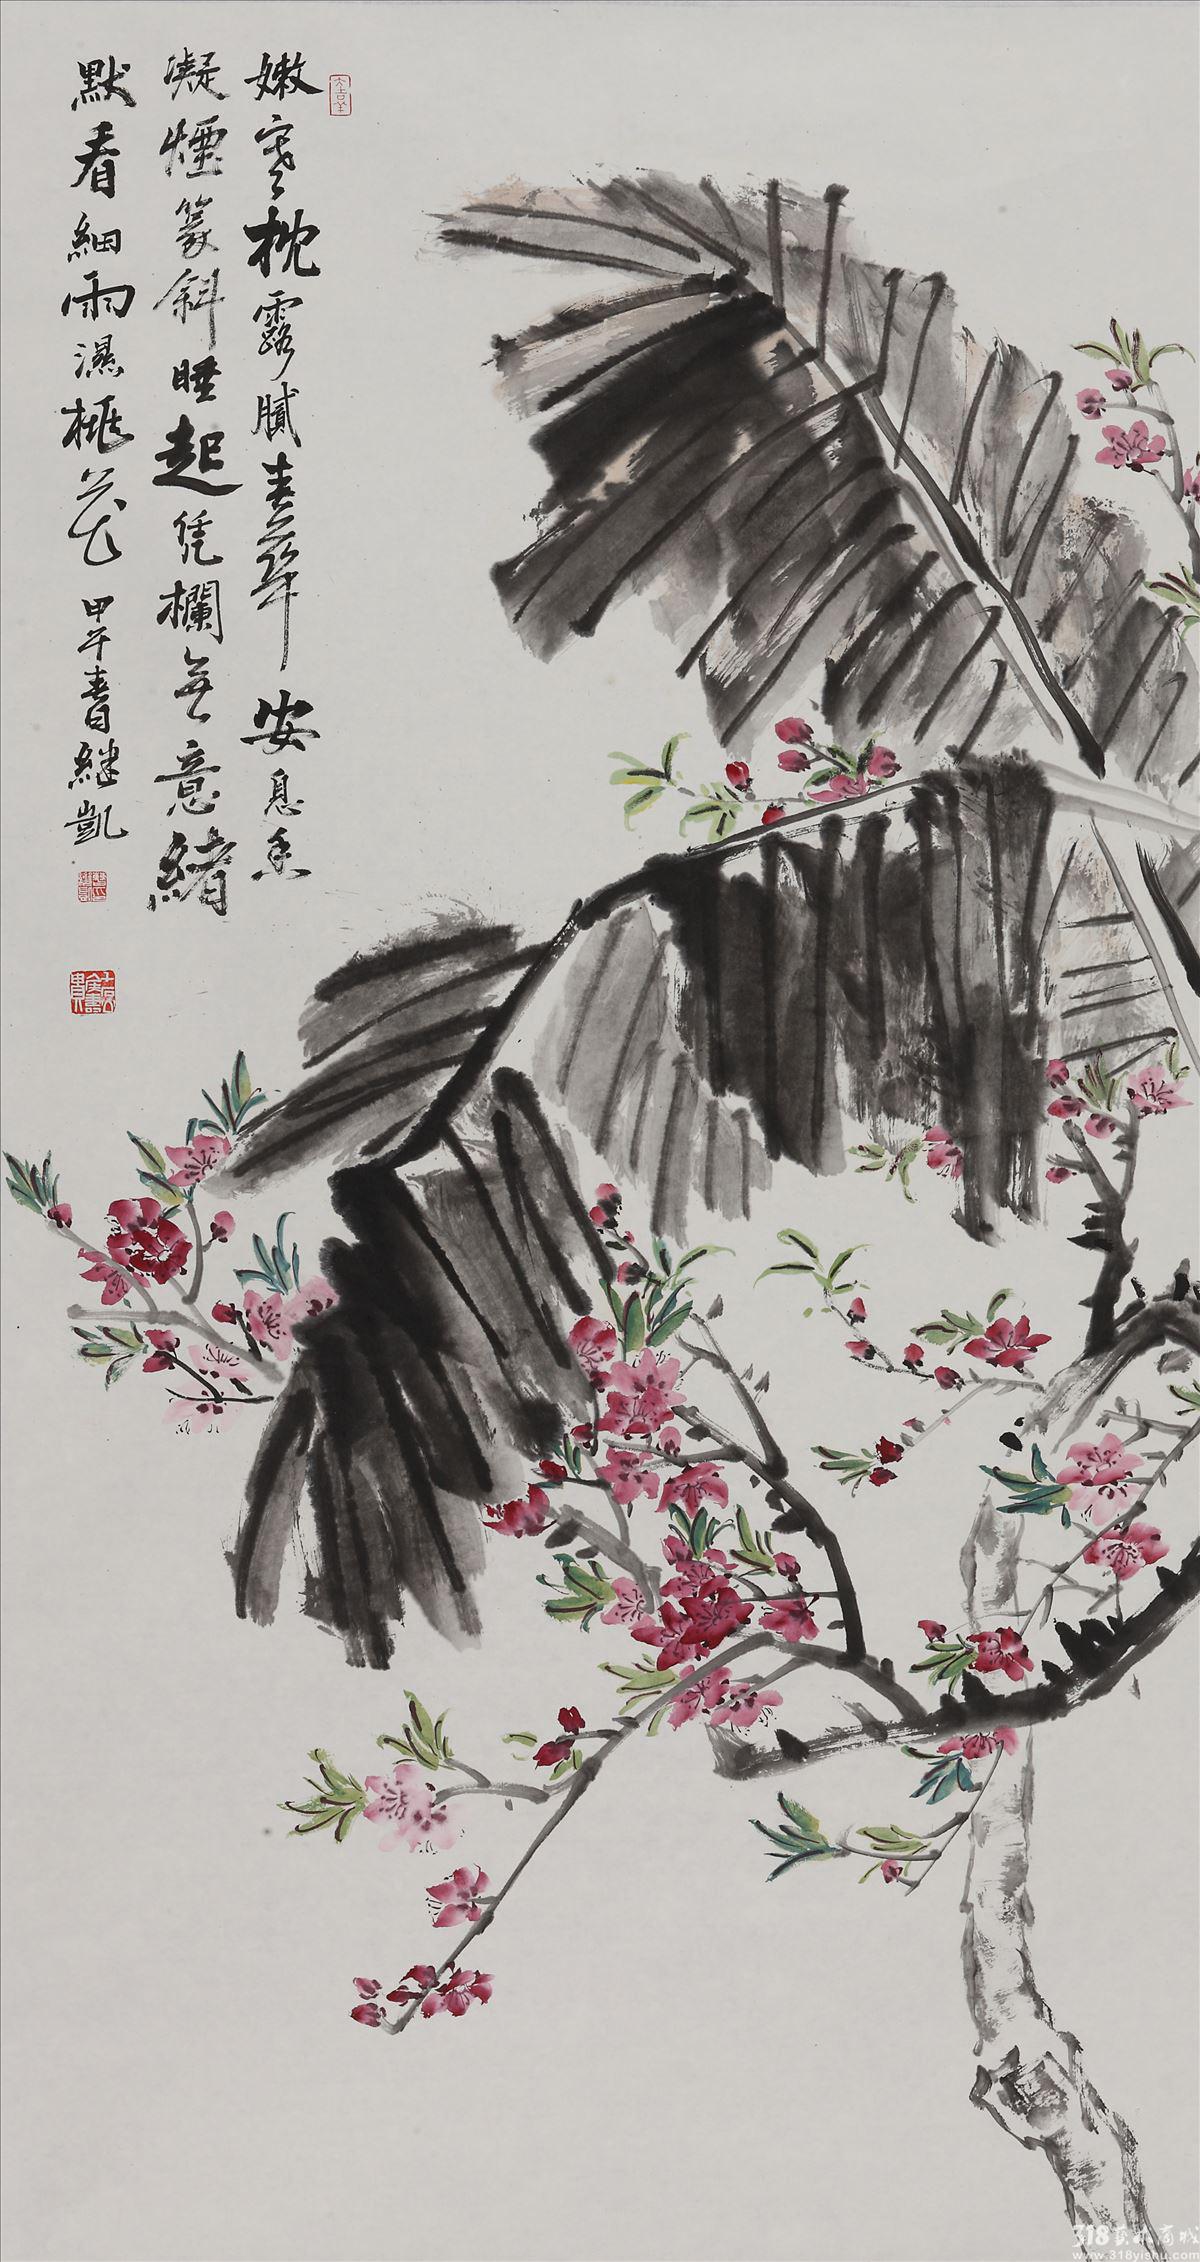 嫩寒枕露膩春華安息香
凝煙篆斜睡起凭欄無意緒
默看細雨濕桃花 甲午春月繼凱
大吉羊
318艺术商城
www.318yishu.com